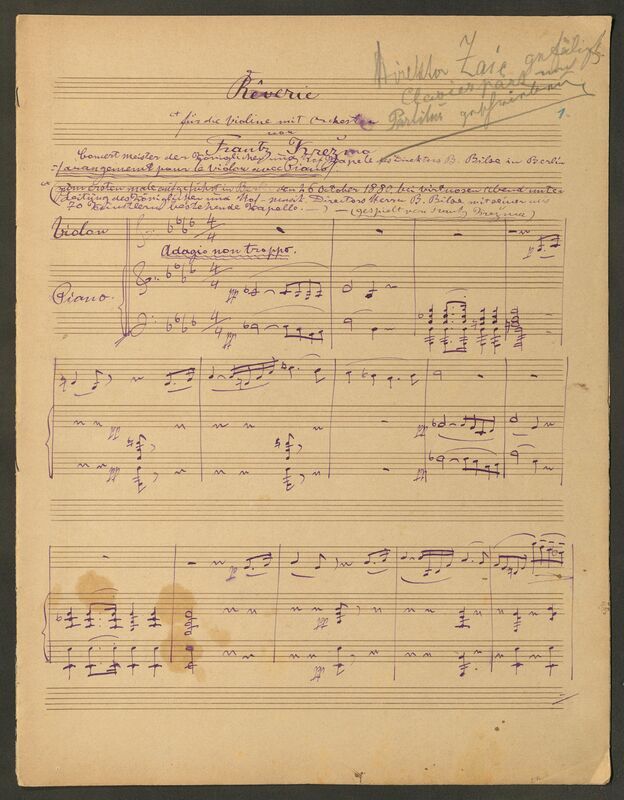 Direktor Zaić gefälligst
Clavierpart
Partitur
1.
Rêverie
für die Violine mit Orchester
von
Frantz Krežma
Concertmeister der Königlichen und Hof Kapelle des Direktors B. Bilse in Berlin
(arangement pour le violon avec piano)
zum ersten male aufgeführt in den 26 October 1880 bei virtuosen Abend unter
Leitung des Königlichen und Hof-musik Directors Herrn B. Bilse mit seiner aus
70 Künstlern bestehende Kapelle.) — (gespielt von Frantz Krežma)
Violon
Adagio non troppo.
Piano.